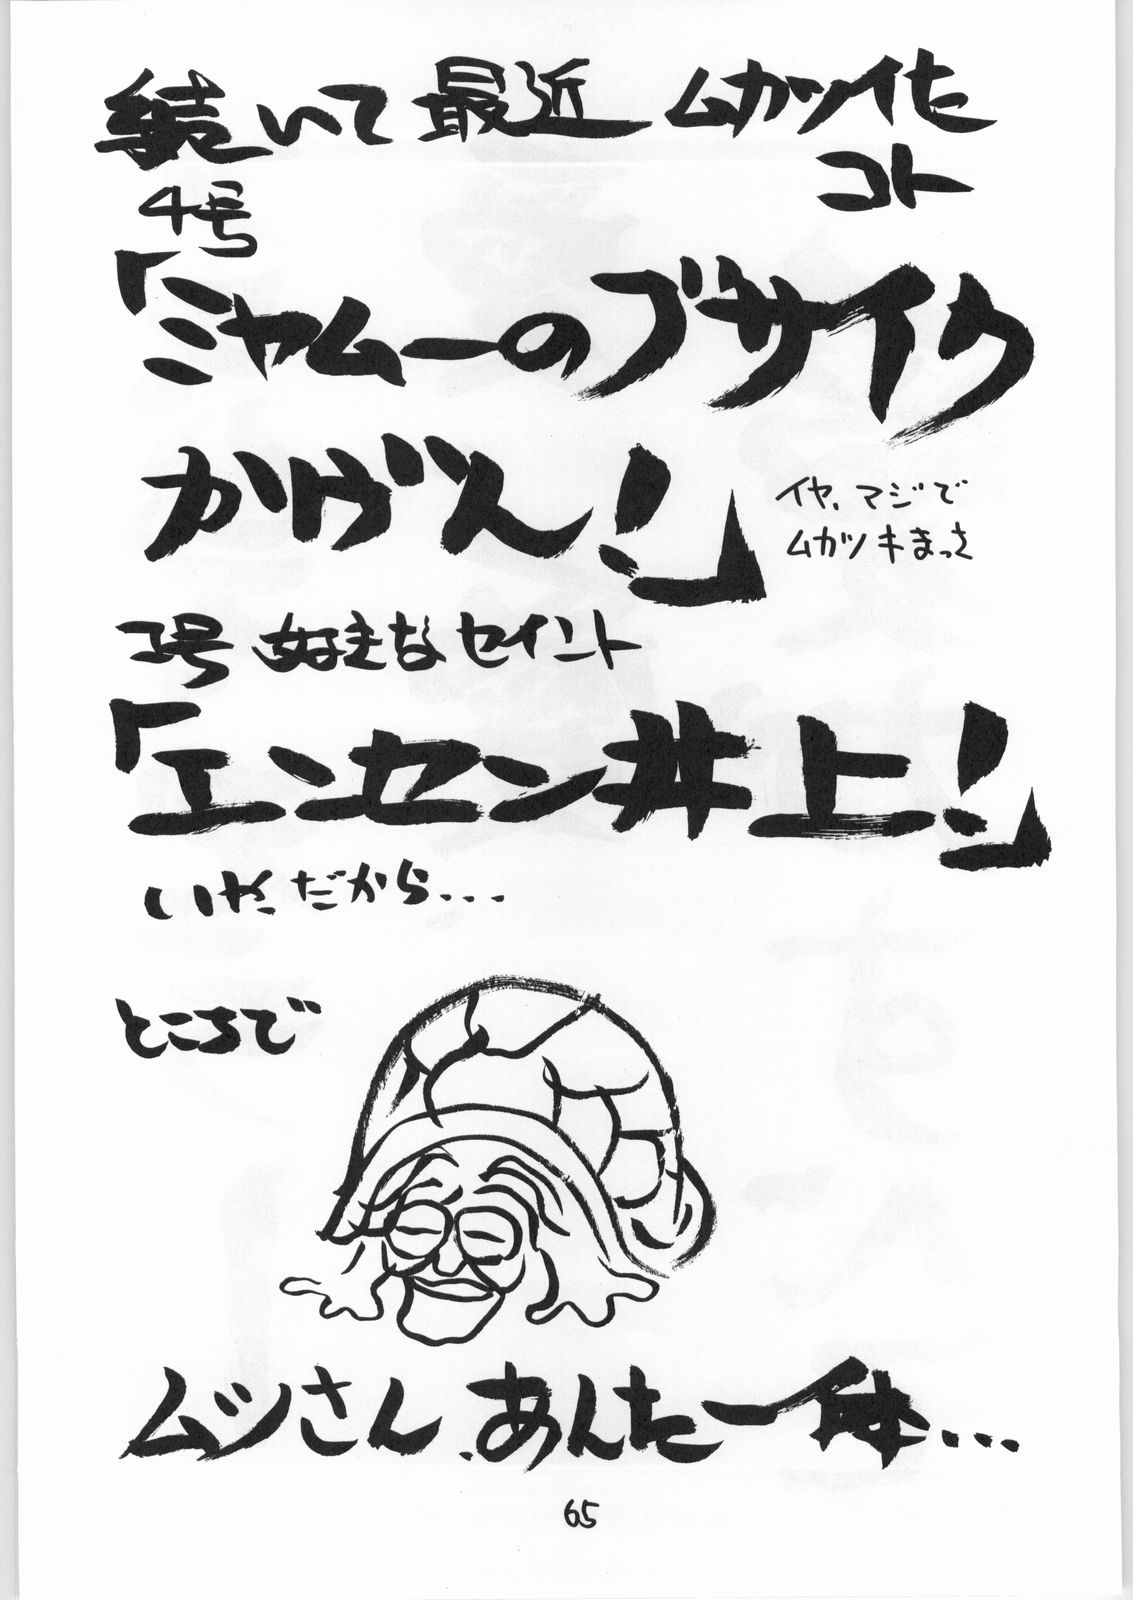 続いて最近ムカツイた
コト
4号
「ミャムーのブサイク
かげん!」
イヤ、マジで
ムカツキまっさ
コ号 好きなセイント
「エンセン井上!」
いや、だから...
ところで
ムツさん、あんた一体...
65